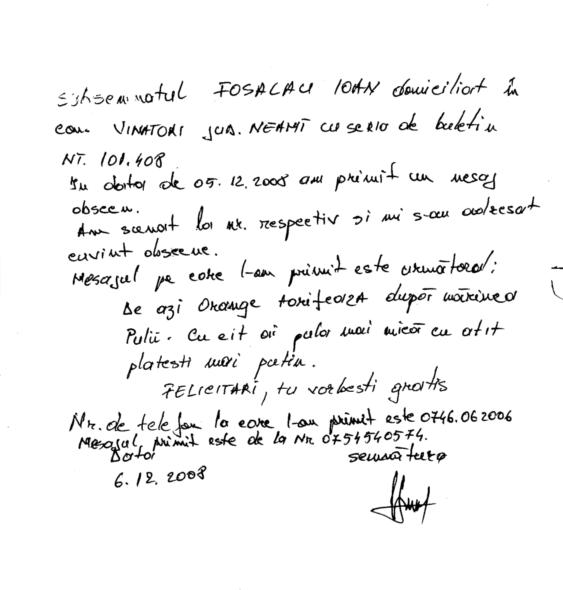 Subsemnatul FOSALAU IOAN domiciliat în
com. VINATORI JUD. NEAMT cu serio de buletin
NT. 101.408
In data de 05.12.2008 am primit un mesaj
obscen.
Am sunat la nr. respectiv si mi s-au adresat
cuvint obscene.
Mesajul pe care l-am primit este urmatorul;
De azi Orange tarifeaza după mărimea
Pulii. Cu cit ai pula mai mică cu atit
platesti mai putin.
FELICITARI, tu vorbesti gratis
Nr. de telefon la care l-am primit este 0746.062006
Mesajul primit este de la Nr 0754540574.
Data semnătura
6.12.2008